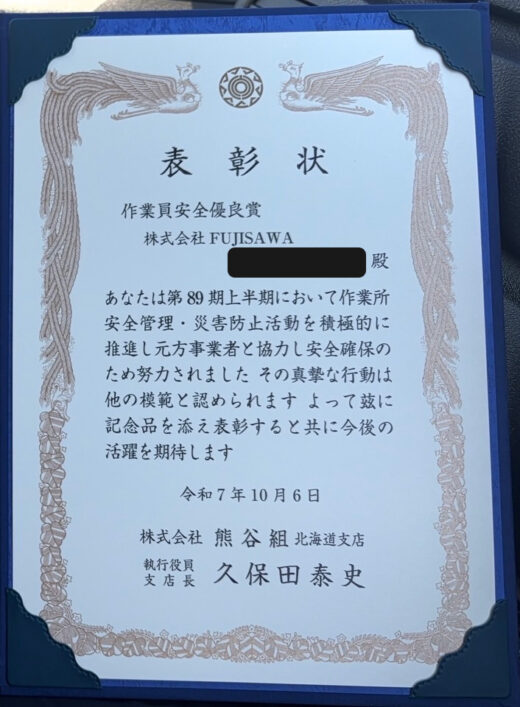 表彰状
作業員安全優良賞
株式会社FUJISAWA
殿
あなたは第89期上半期において作業所
安全管理・災害防止活動を積極的に
推進し元方事業者と協力し安全確保の
ため努力されました その真摯な行動は
他の模範と認められます よって茲に
記念品を添え表彰すると共に今後の
活躍を期待します
令和7年10月6日
株式会社 熊谷組 北海道支店
執行役員
支店長 久保田泰史